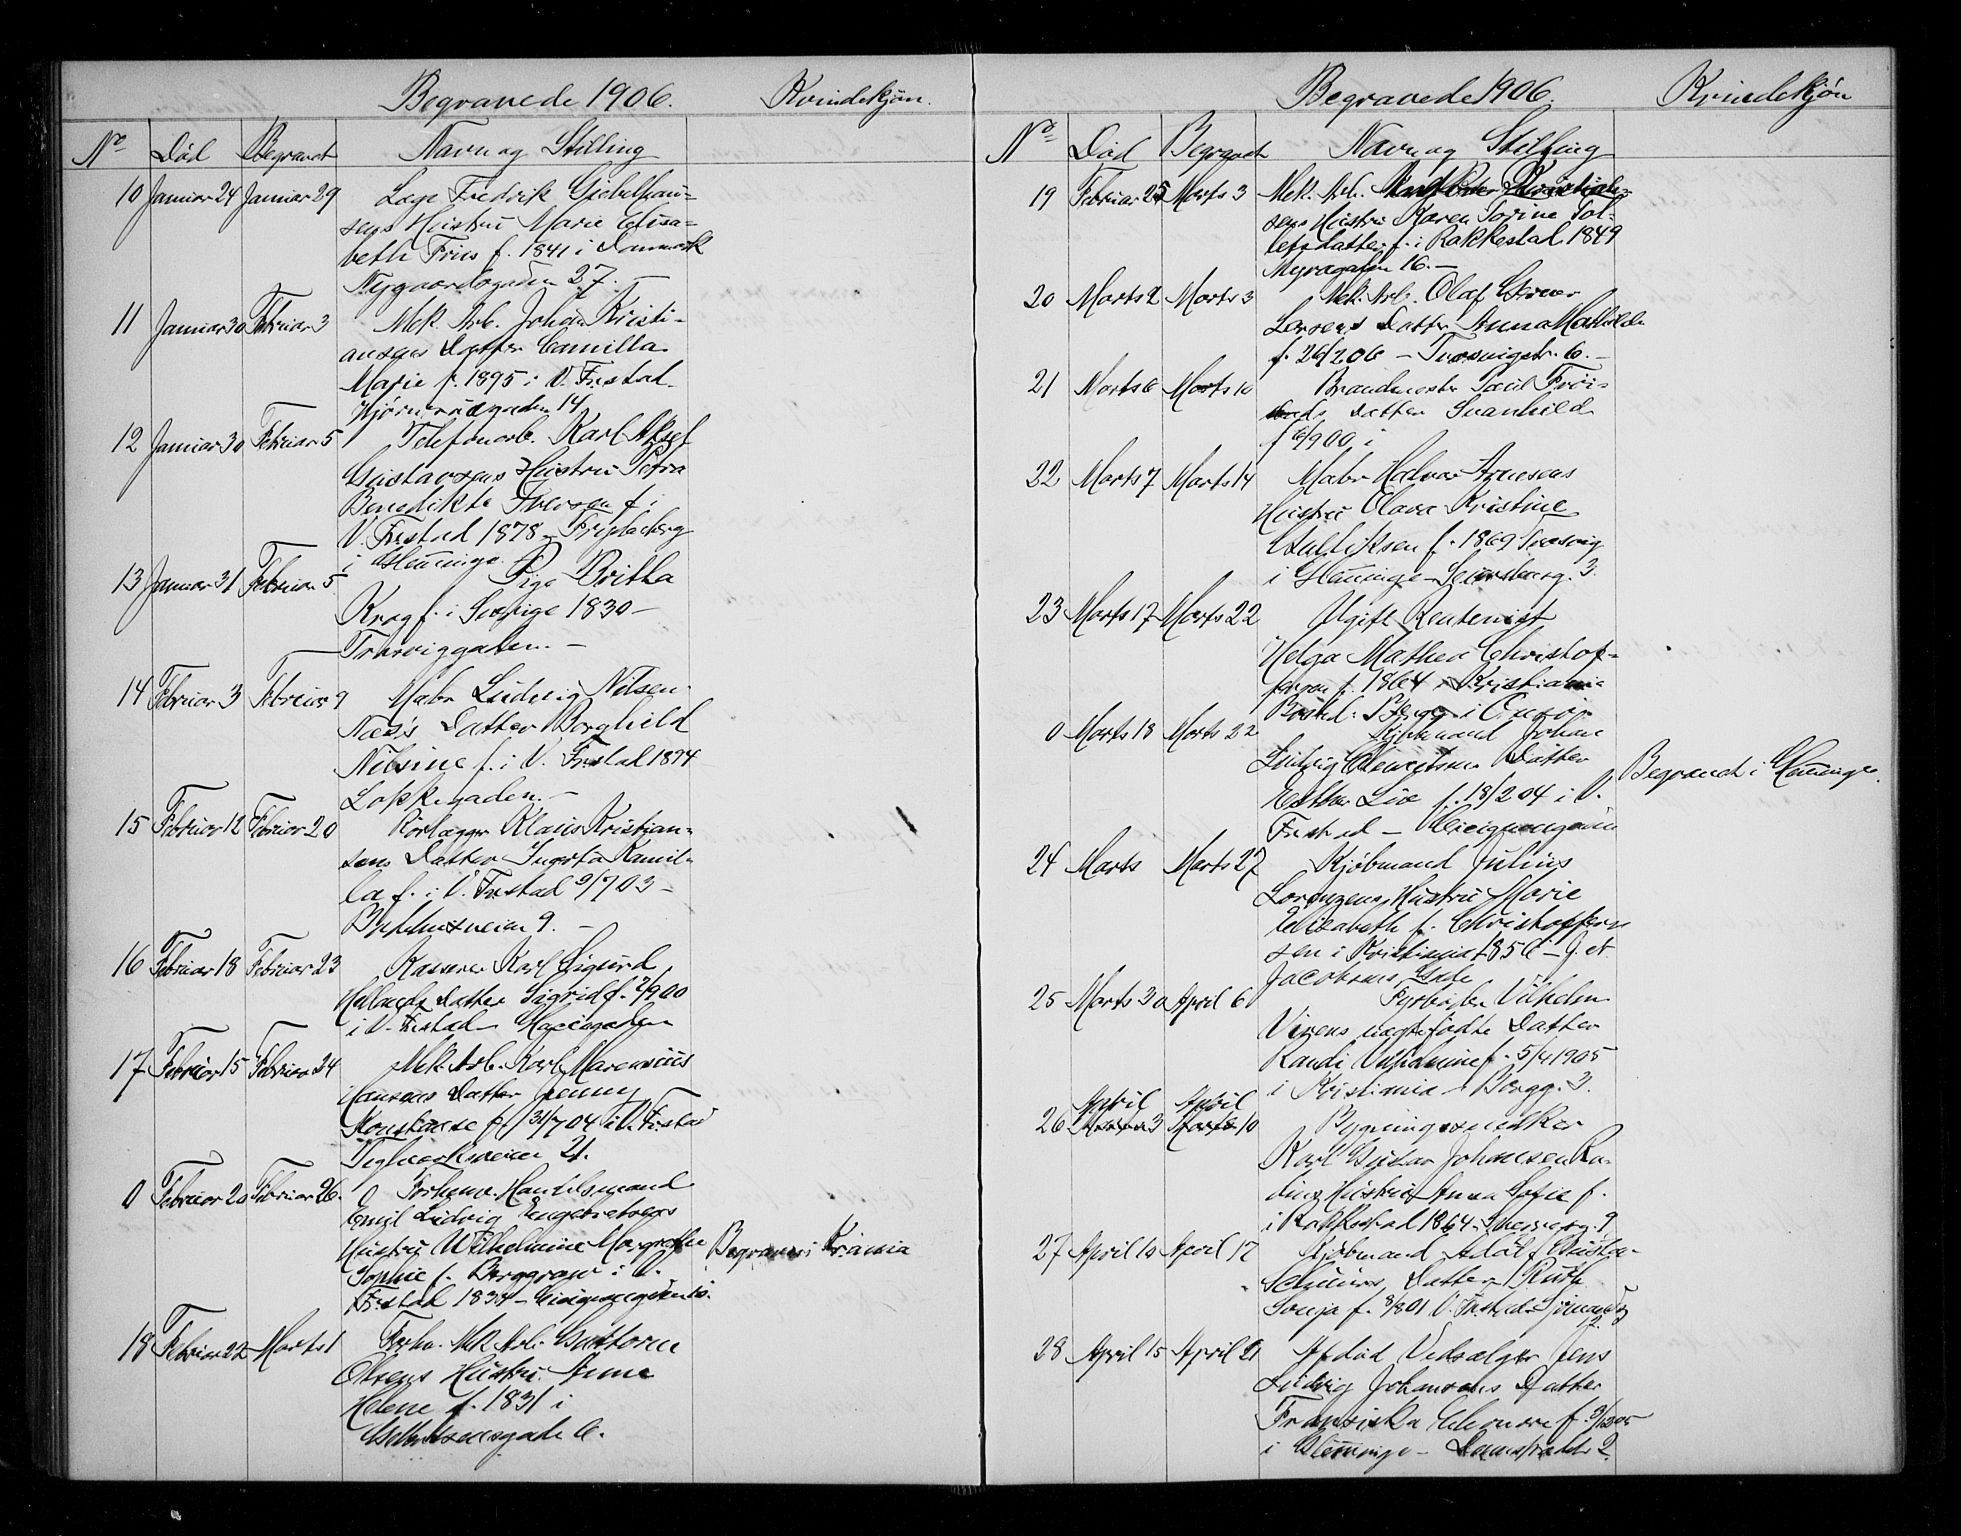 Begravede 1906. Kvindekjøn.
No Død Begravet Navn og Stilling
10 Januar 24 Januar 29 Læge Fredrik Gjebelhau-
sens Hustru Marie Elisa-
beth Friis f. 1841 i Danmark
Nygaardsgaden 27. —
11 Januar 30 Februar 3 Mek. Arb. Johan Kristi-
ansens Datter Camilla
Marie f. 1895 i V. Frestad.
Hjørnerudgaden 14
12 Januar 30 Februar 5 Telefonarb. Karl Aksel
Gustavsens Hustru Petra
Benedikte Iversen f. i
V. Frestad 1878 — Frydenberg
i Glemminge.
13 Januar 31 Februar 5 Pige Britha
Krog f. i Sverige 1830 —
Trosviggaden. —
14 Februar 3 Februar 9 Matr. Ludvig Nilsen
Næs's Datter Borghild
Nilsine f. i V. Frestad 1894
Løkkegaden. —
15 Februar 12 Februar 20 Rørlægger Klaus Kristian-
sens Datter Ingerta Kamil-
la f. i V. Frestad 9/7 03 —
9. —
16 Februar 18 Februar 23 Kasserer Karl Sigurd
Datter Sigrid f. 2/9 00
i V. Frestad —
17 Februar 15 Februar 24 Mek. Arb. Karl Marensius
Hansens Datter Jenny
Konstanse f. 31/7 04 i V. Frestad
Teglverksveien 21.
0 Februar 20 Februar 26. Forhenv. Handelsmand
Emil Ludvig Engebretsens
Hustru Wilhelmine Margrethe
Sophie f. Berggraw i V. Begraves i Kr.ania
Frestad 1834 —
18 Februar 22 Marts 1 Forhv. Mek Arb. Guttorm
Olsens Hustru Anne
Helene f. 1831 i
6.
Begravede 1906. Kvindekjøn
No Død Begravet Navn og Stilling
19 Februar 25 Marts 3 Mek. Arb. Kristian-
sens Hustru Karen Torine Tol-
lefsdatter f. i Rakkestad 1849
Myragaden 16. —
20 Marts 2 Marts 3 Mek. Arb. Olaf Gerner
Larsens Datter Anna Mathilde
f. 26/2 06 — Trosvigstr. 6. —
21 Marts 6 Marts 10 Brandmester Paul Frøi-
lands Datter Svanhild
f. 6/9 00 i
22 Marts 7 Marts 14 Matr. Halvor Arnesens
Hustru Olava Kristine
f. 1869 Trosvig
i Glemminge — 3.
23 Marts 17 Marts 22 Ugift Rentenist
Helga Mathea Christof-
fersen f. 1864 i Kristiania
Bosted: Berg i Onsø.
0 Marts 18 Marts 22 Kjøbmand Johan
Ludvig Clemetsens Datter
Esther Lie f. 18/2 04 i V. Begravet i Glemminge.
Frestad —
24 Marts Marts 27 Kjøbmand Julius
Lorenzens Hustru Marie
Elisabeth f. Christoffern
sen i Kristiania 1856 — J. et
Jacobsens Gade
25 Marts 30 April 6 Fyrbøder Vilhelm
Virens uægtefødte Datter
Randi Vilhelmine f. 5/4 1905
i Kristiania — Bergg. 3.
April April
26 Marts 3 Marts 10 Bygningssnedker
Karl Gustav Johansen Ra-
dins Hustru Anna Sofie f.
i Rakkestad 1864 — 9
27 April 10 April 17 Kjøbmand Adolf Gustav
Datter Ruth
Sonja f. 8/8 01 V. Frestad
12.
28 April 15 April 21 Afdød Vedsælger Jens
Ludvig Johansens Datter
Fransiska Eleonore f. 9/12 05
i Glemminge — 2.